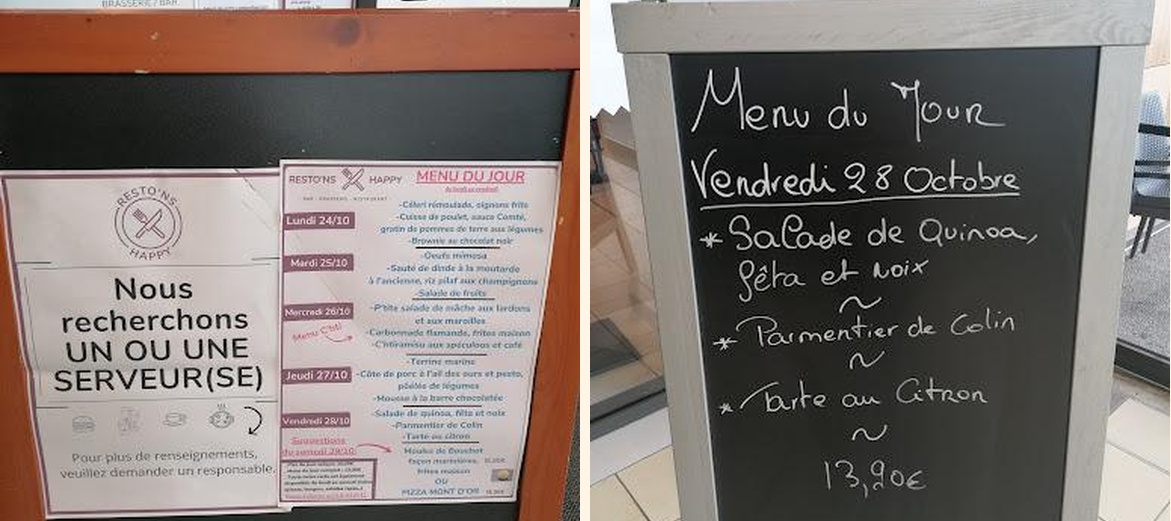 BRASSERIE / BAR
RESTO'NS
HAPPY
Nous
recherchons
UN OU UNE
SERVEUR(SE)
Pour plus de renseignements,
veuillez demander un responsable.
RESTO'NS HAPPY
MENU DU JOUR
Lundi 24/10
-Céleri rémoulade, oignons frits
-Cuisse de poulet, sauce Comté,
gratin de pommes de terre aux légumes
-Brownie au chocolat noir
Mardi 25/10
-Oeufs mimosa
-Sauté de dinde à la moutarde
à l'ancienne, riz pilaf aux champignons
-Salade de fruits
Mercredi 26/10
-P'tite salade de mâche aux lardons
et aux maroilles
Menu C'hti
-Carbonnade flamande, frites maison
-C'htiramisu aux spéculoos et café
Jeudi 27/10
-Terrine marine
-Côte de porc à l'ail des ours et pesto,
poêlée de légumes
-Mousse à la barre chocolatée
Vendredi 28/10
-Salade de quinoa, fêta et noix
-Parmentier de Colin
-Tarte au citron
Suggestions
du samedi 29/10:
Moules de Bouchot
façon marinières,
frites maison
OU
PIZZA MONT D'OR
Menu du Jour
Vendredi 28 Octobre
* Salade de Quinoa,
fêta et noix
~
* Parmentier de Colin
~
* Tarte au Citron
~
13,90€